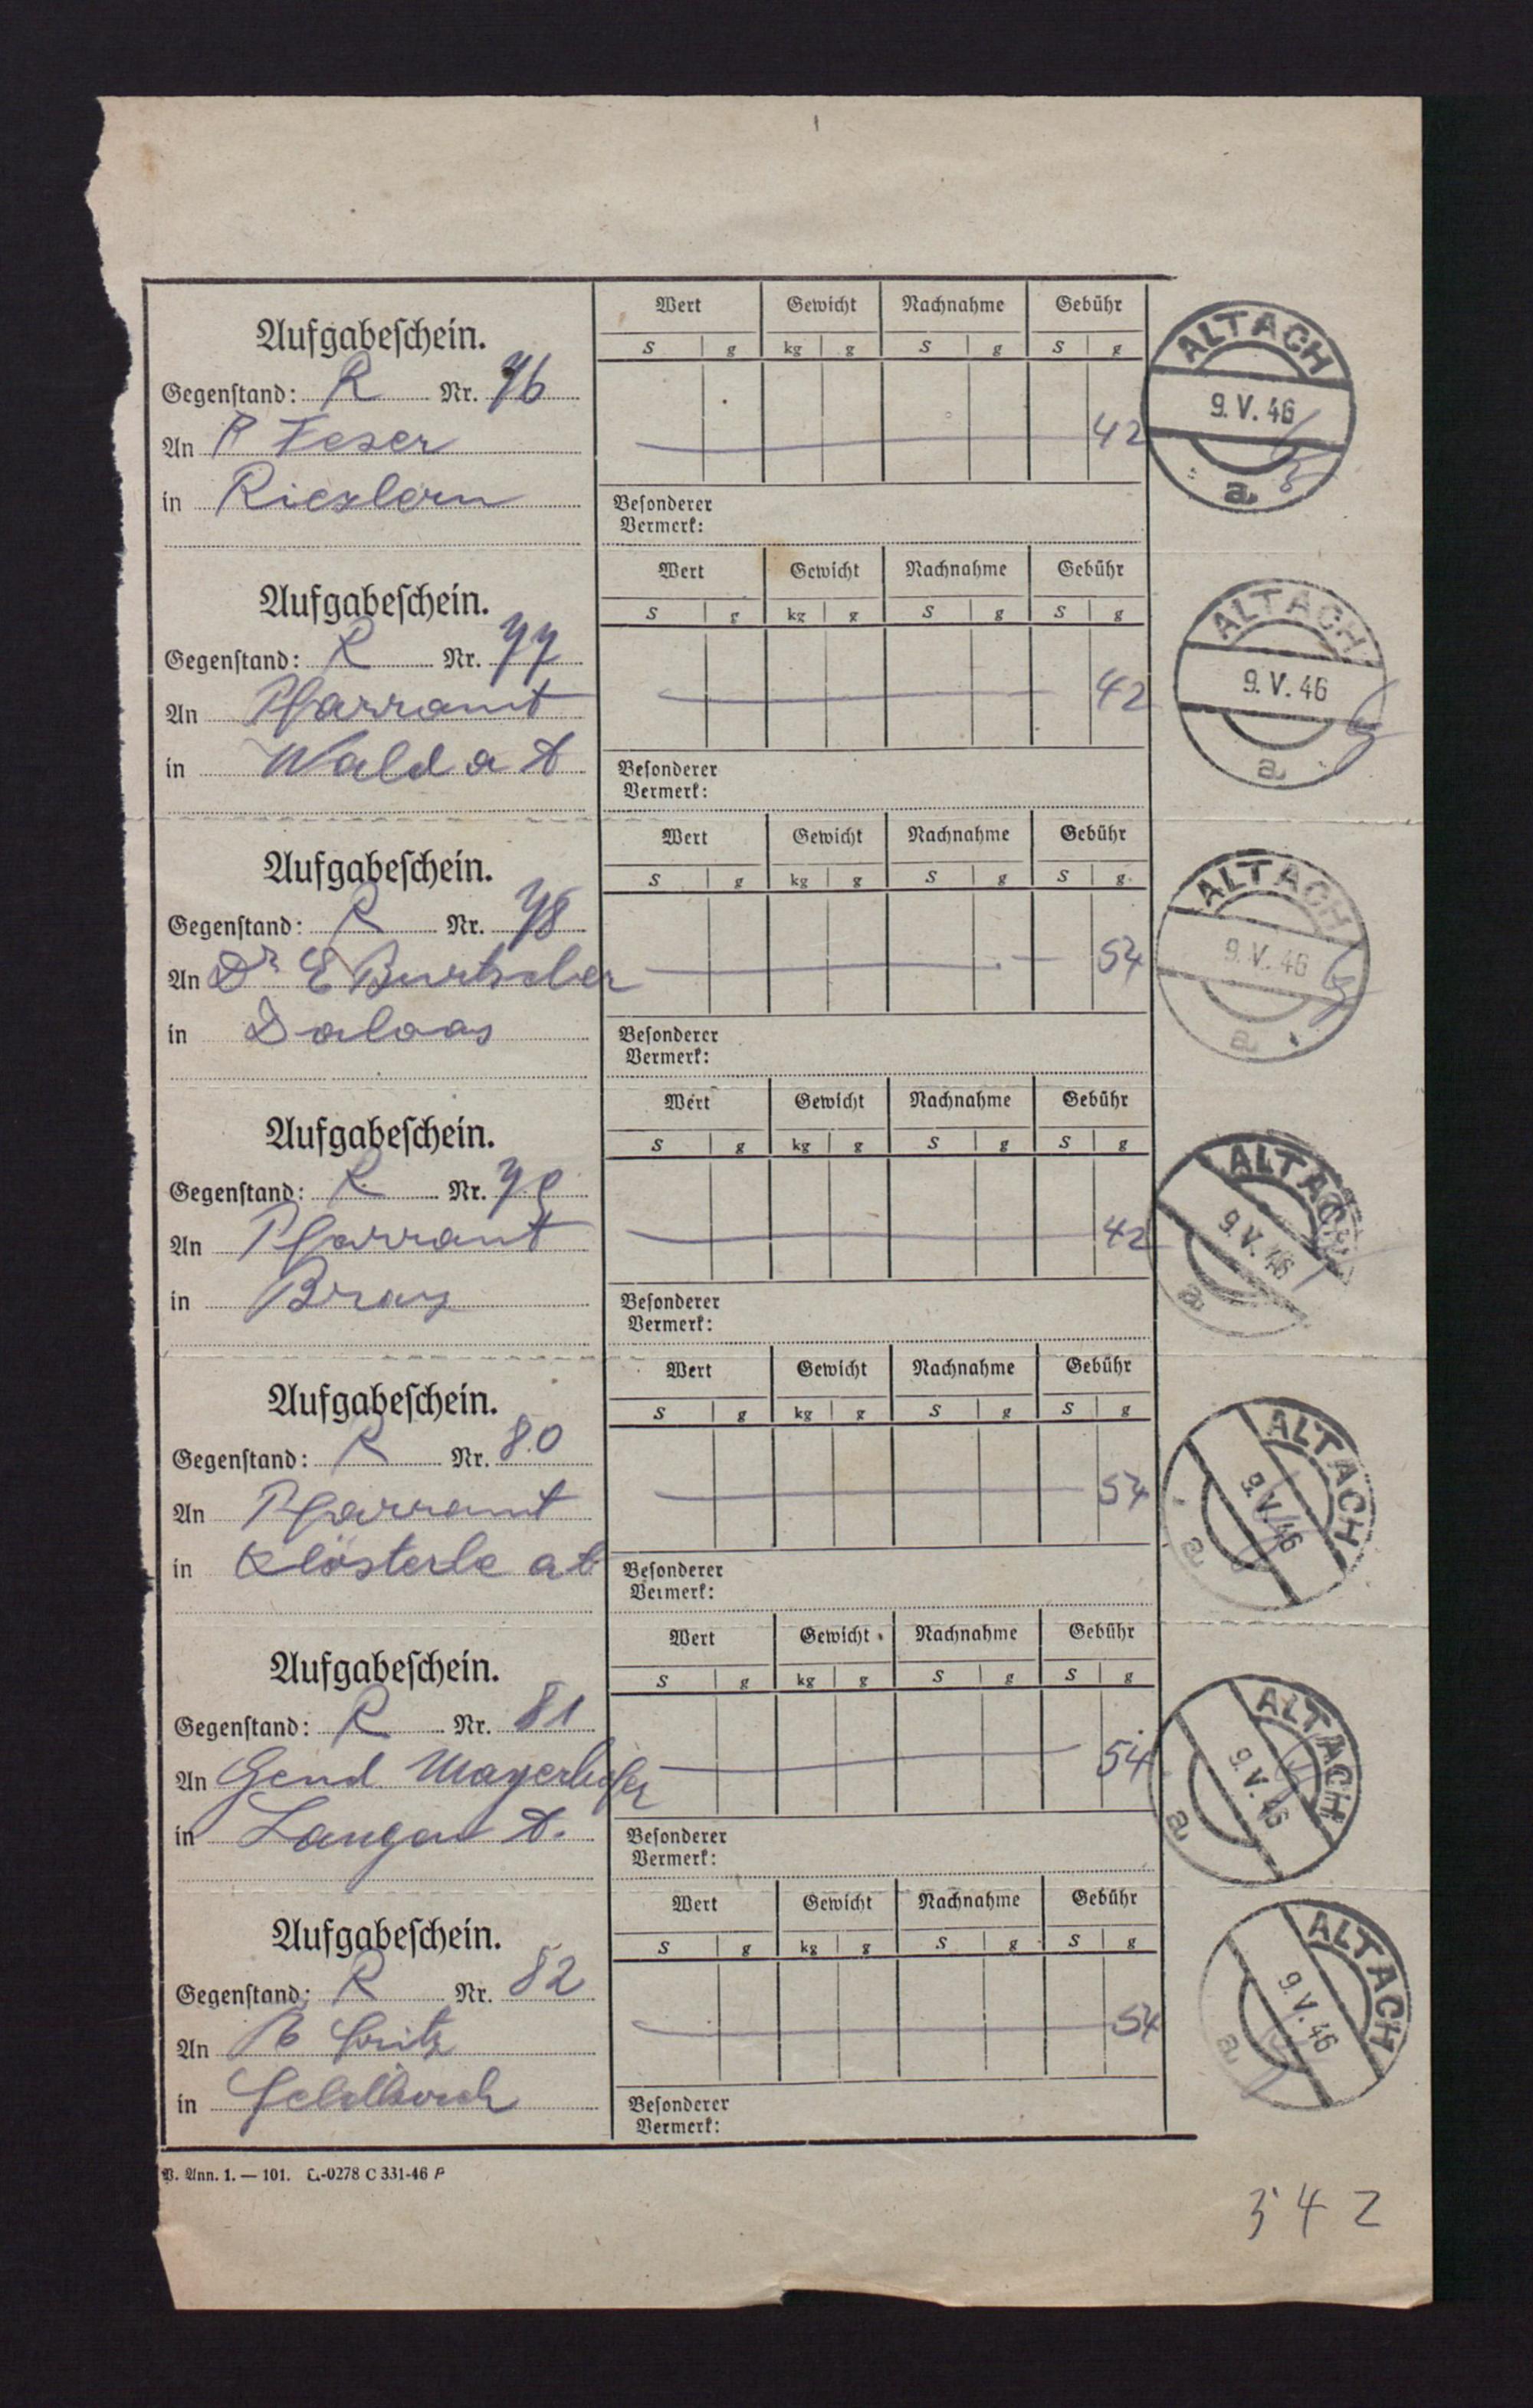 Aufgabeschein.
Gegenstand: R Nr. 76
An P Feser
in Riezlern
Wert Gewicht Nachnahme Gebühr
S g kg g S g S g
42
Besonderer
Vermerk:
ALTACH
9.V.46
a
Aufgabeschein.
Gegenstand: R Nr. 77
An Pfarramt
in Wald a A
Wert Gewicht Nachnahme Gebühr
S g kg g S g S g
42
Besonderer
Vermerk:
ALTACH
9.V.46
a
Aufgabeschein.
Gegenstand: R Nr. 78
An Dr E Burtscher
in Dalaas
Wert Gewicht Nachnahme Gebühr
S g kg g S g S g
54
Besonderer
Vermerk:
ALTACH
9.V.46
a
Aufgabeschein.
Gegenstand: R Nr. 79
An Pfarramt
in Braz
Wert Gewicht Nachnahme Gebühr
S g kg g S g S g
42
Besonderer
Vermerk:
ALTACH
9.V.46
a
Aufgabeschein.
Gegenstand: R Nr. 80
An Pfarramt
in Klösterle a A
Wert Gewicht Nachnahme Gebühr
S g kg g S g S g
54
Besonderer
Vermerk:
ALTACH
9.V.46
a
Aufgabeschein.
Gegenstand: R Nr. 81
An Gend. Mayerhofer
in Langen A.
Wert Gewicht Nachnahme Gebühr
S g kg g S g S g
54
Besonderer
Vermerk:
ALTACH
9.V.46
a
Aufgabeschein.
Gegenstand: R Nr. 82
An Fritz
in Feldkirch
Wert Gewicht Nachnahme Gebühr
S g kg g S g S g
54
Besonderer
Vermerk:
ALTACH
9.V.46
a
P. Ann. 1. — 101. -0278 C 331-46 P
342